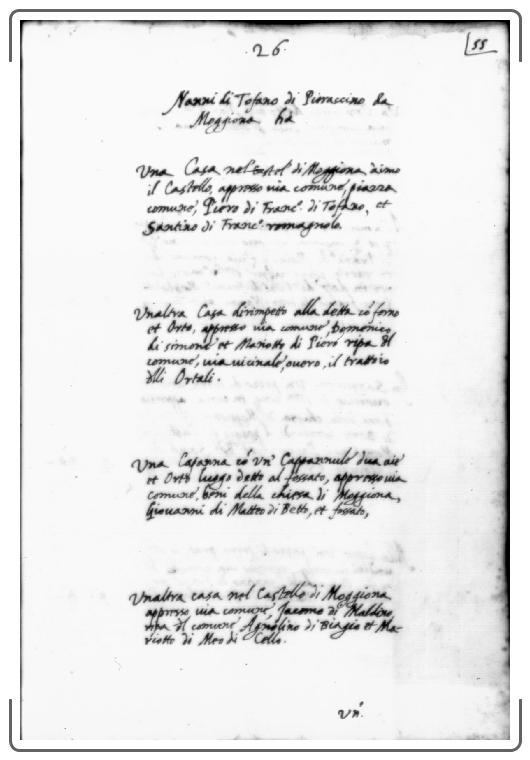 .26.
55
Nanni di Tofano di Pieraccino da
Moggiona ha
Una Casa nel Castel di Moggiona
il Castello, appresso via comune, piazza
comune, Piero di Franc.º di Tofano, et
Santino di Franc.º romagnolo.
Unaltra Casa dirimpetto alla detta cō forno
et Orto, appresso via comune, Domenico
di simone et Mariotto di Piero ripa dl
comune, via vicinale, overo, il trattoio
dlli Ortali.
Una Capanna cō un' Capannule dua aie
et Orto luogo detto al fossato, appresso via
comune, beni della chiesa di Moggiona,
Giovanni di Matteo di Betto, et fossato,
Unaltra casa nel Castello di Moggiona
appresso via comune Jacomo di
ripa dl comune Agnolino di Biagio et Ma-
riotto di Meo di Cello.
Un'.